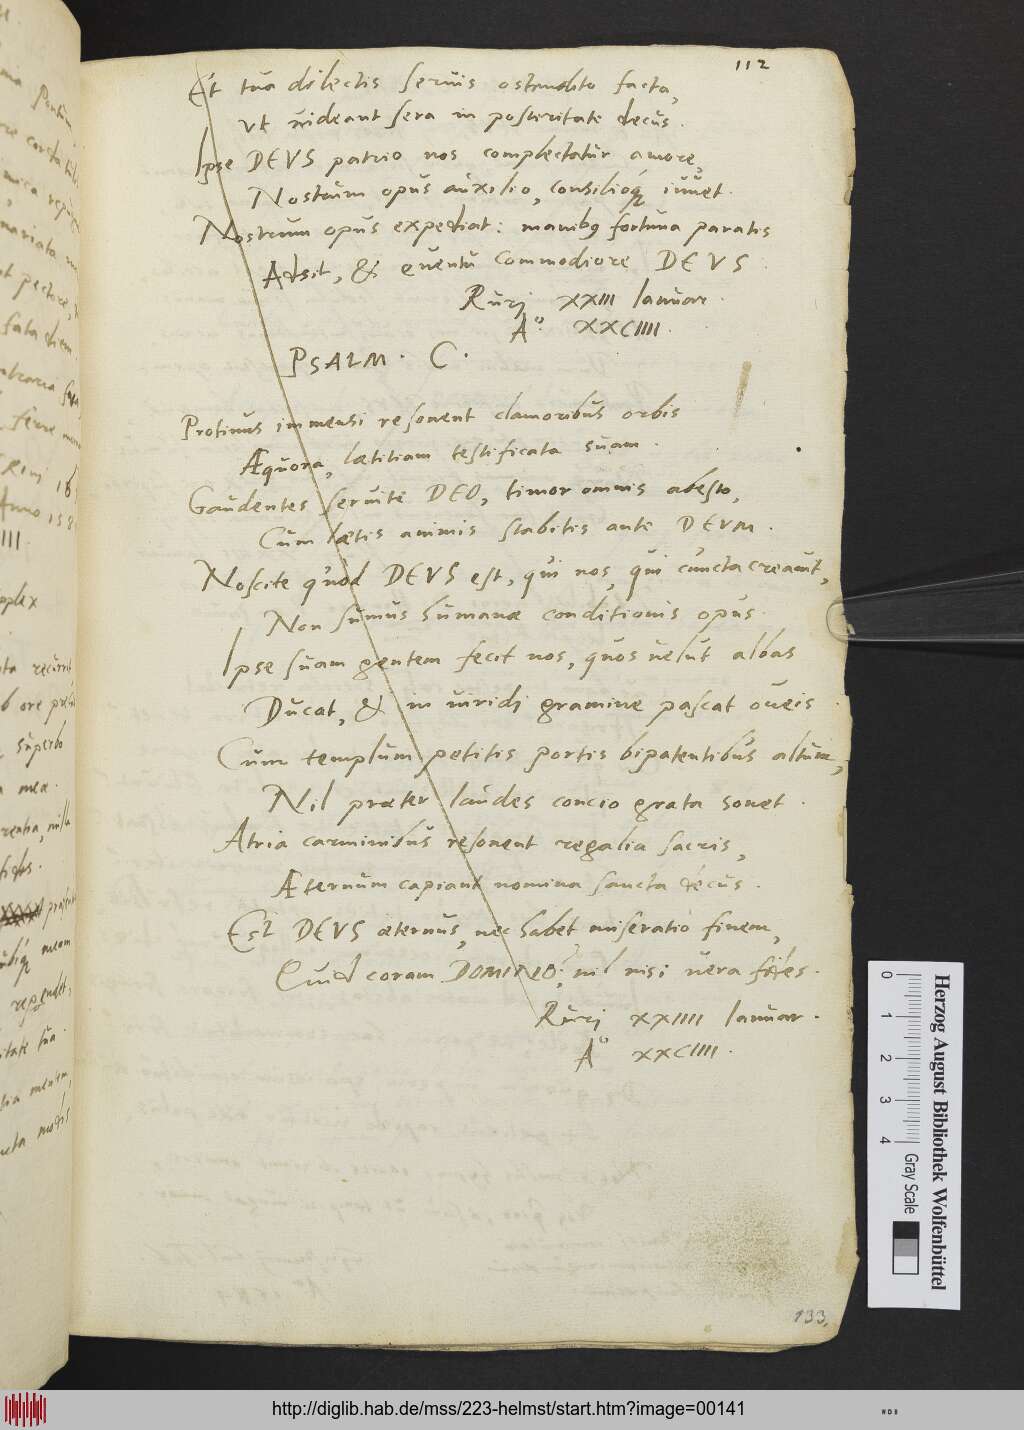 112
Et tua dilectis servis ostendito facta,
Vt videant sera in posteritate decus.
Ipse DEVS patrio nos complectatur amore,
Nostrum opus auxilio, consilioq; iuuet.
Nostrum opus expediat: manibꝰ fortuna paratis
Adsit, & euentu commodiore DEVS.
Rurj XXIII Ianuar.
A° XXCIIII.
PSALM. C.
Protinus immensi resonent clamoribus orbis
Æquora, lætitiam testificata suam.
Gaudentes seruite DEO, timor omnis abesto,
Cum lætis animis stabitis ante DEVM.
Noscite quod DEVS est, qui nos, qui cuncta creauit,
Non sumus humanæ conditionis opus.
Ipse suam gentem fecit nos, quos uelut albas
Ducat, & in viridj gramine pascat oueis.
Cum templum petitis portis bipatentibus altum,
Nil præter laudes concio grata sonet.
Atria carminibus resonent regalia sacris,
Æternum capiant nomina sancta decus.
Est DEVS æternus, nec habet miseratio finem,
Quid coram DOMINO? nil nisi uera fides.
Rurj XXIIII Ianuar.
A° XXCIIII.
133,
Herzog August Bibliothek Wolfenbüttel
0 1 2 3 4 Gray Scale
http://diglib.hab.de/mss/223-helmst/start.htm?image=00141